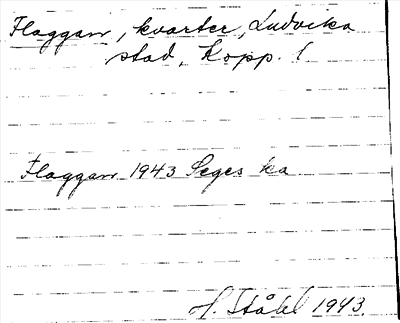 Flaggan, kvarter, Ludvika
stad, Kopp. l
Flaggan 1943 Seges ka
H. Ståhl 1943.